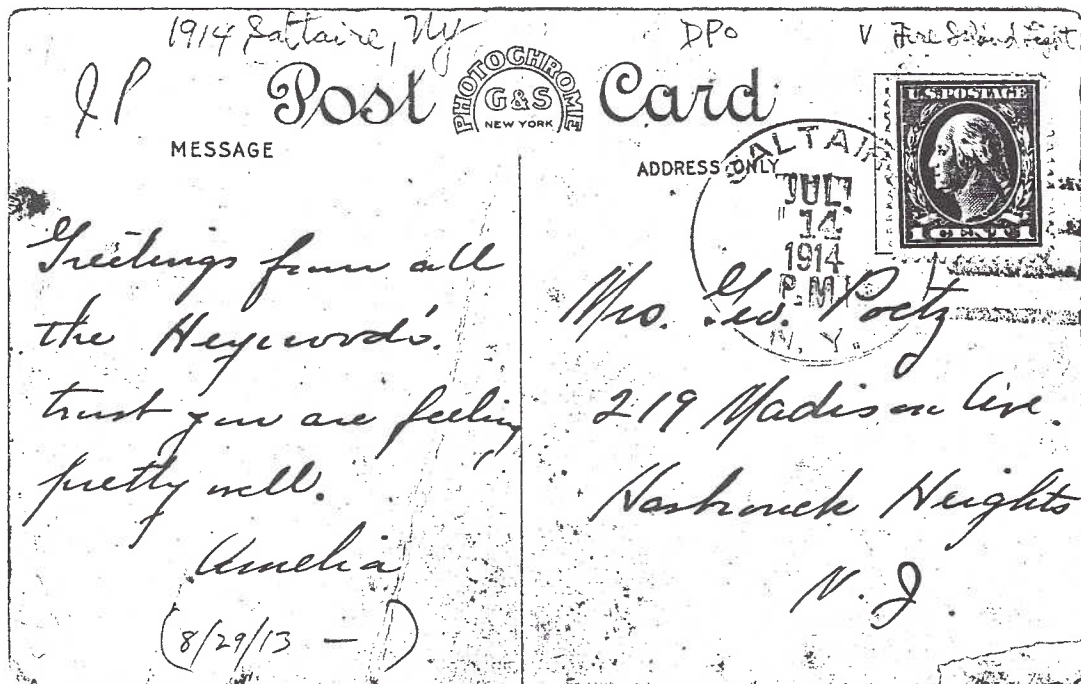 1914 Saltaire, Ny
DPO
V Fire Island Light
JP
Post Card
PHOTOCHROME
G & S
NEW YORK
U.S. POSTAGE
1 CENT 1
MESSAGE
ADDRESS ONLY
SALTAIR
JUL
14
1914
P.M.
N. Y.
Greetings from all
the Heywood's.
trust you are feeling
pretty well.
Amelia
(8/29/13 — )
Mrs. Geo. Poetz
219 Madison Ave.
Hasbrouck Heights
N. J